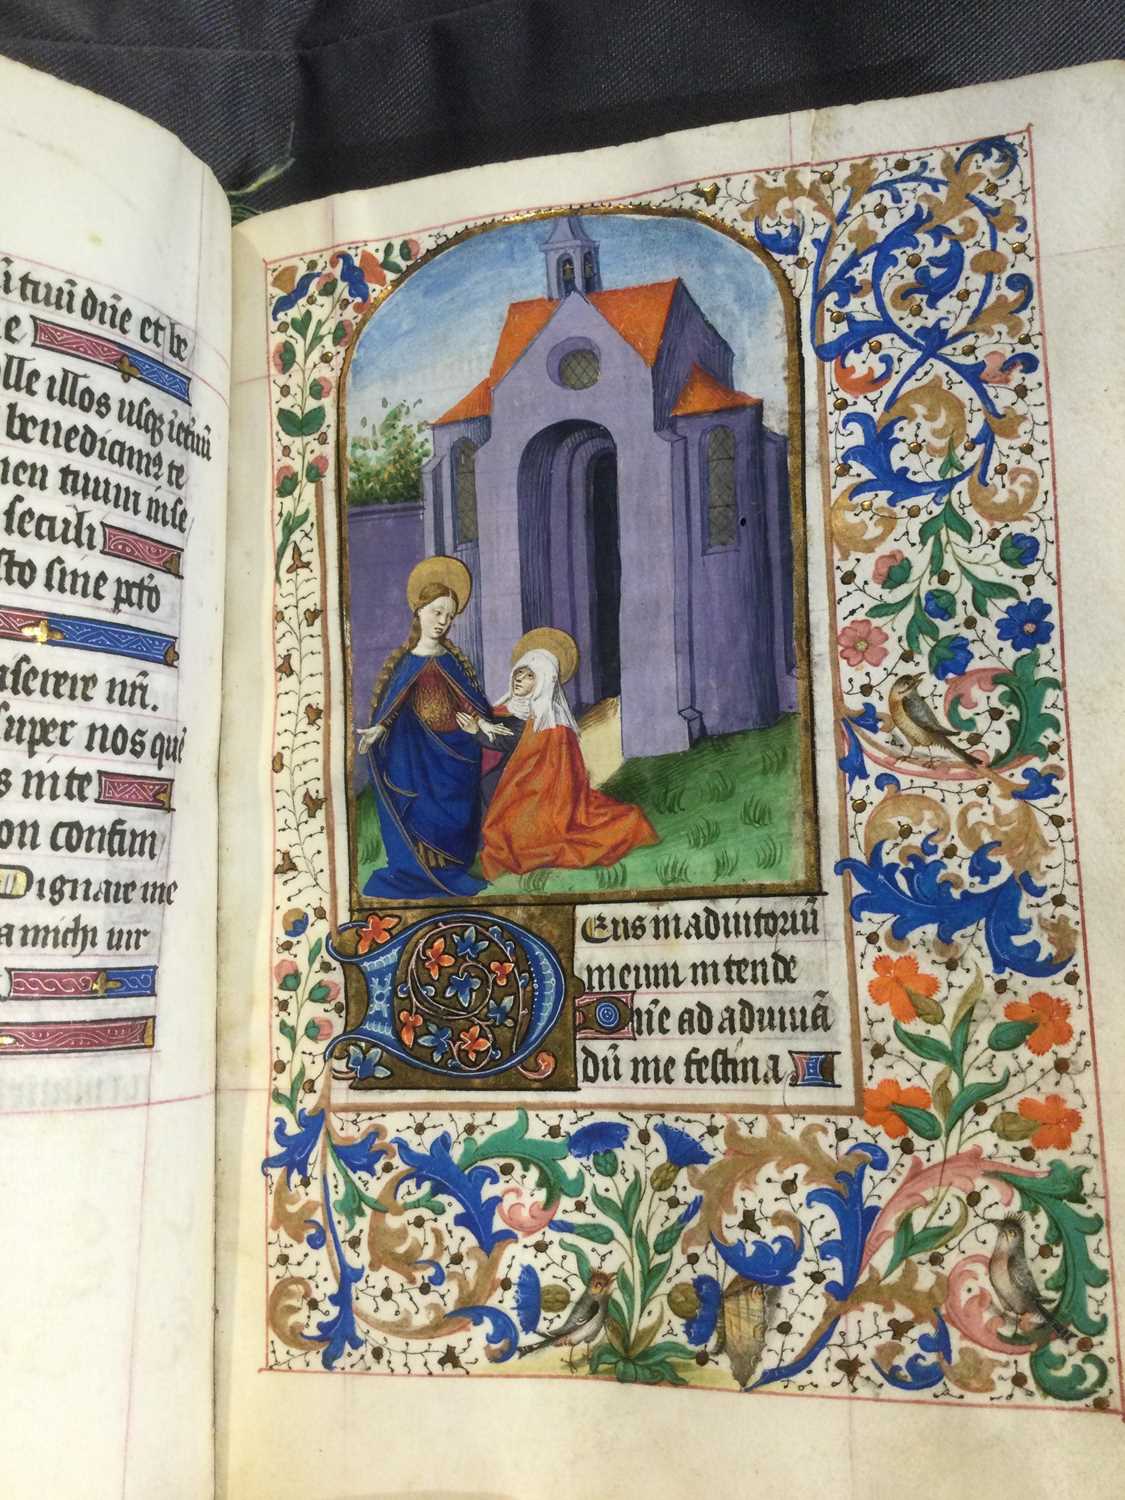 tuu dñe et be
ne
olle illos usq̣ ietnũ
benedicimꝰ te
men tuum inse
seculi
sto sine pctõ
iserere nr̃i.
super nos quẽ
s in te
on confun
Dignare me
a michi uir
Deus in adiutoriũ
meum intende
Dñe ad adiuuã
dũ me festina